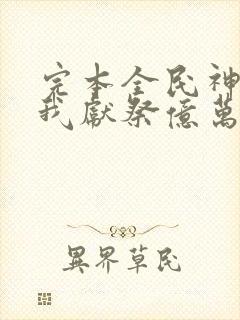 完本全民神
我獻祭億萬
異界草民